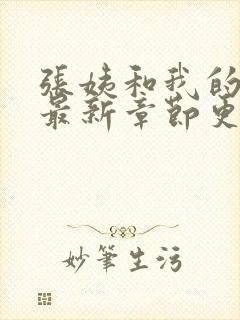 張姨和我的
最新章節更
妙筆生污